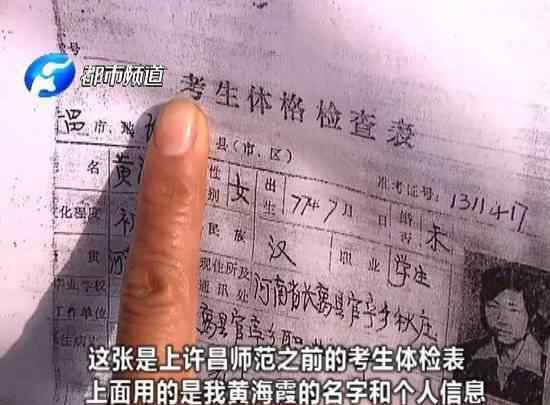 号
都市频道
考生体格检查表
市、 县(市、区)
名 黄 性别 女 出生 77年7月 日 婚否 未
准考证号: 1311417
化程度 初 民族 汉 职业 学生
贯 河 现住所及通讯处 河南省长葛县官亭乡秋庄
毕业学校
工作单位 葛县官亭乡
这张是上许昌师范之前的考生体检表
上面用的是我黄海霞的名字和个人信息